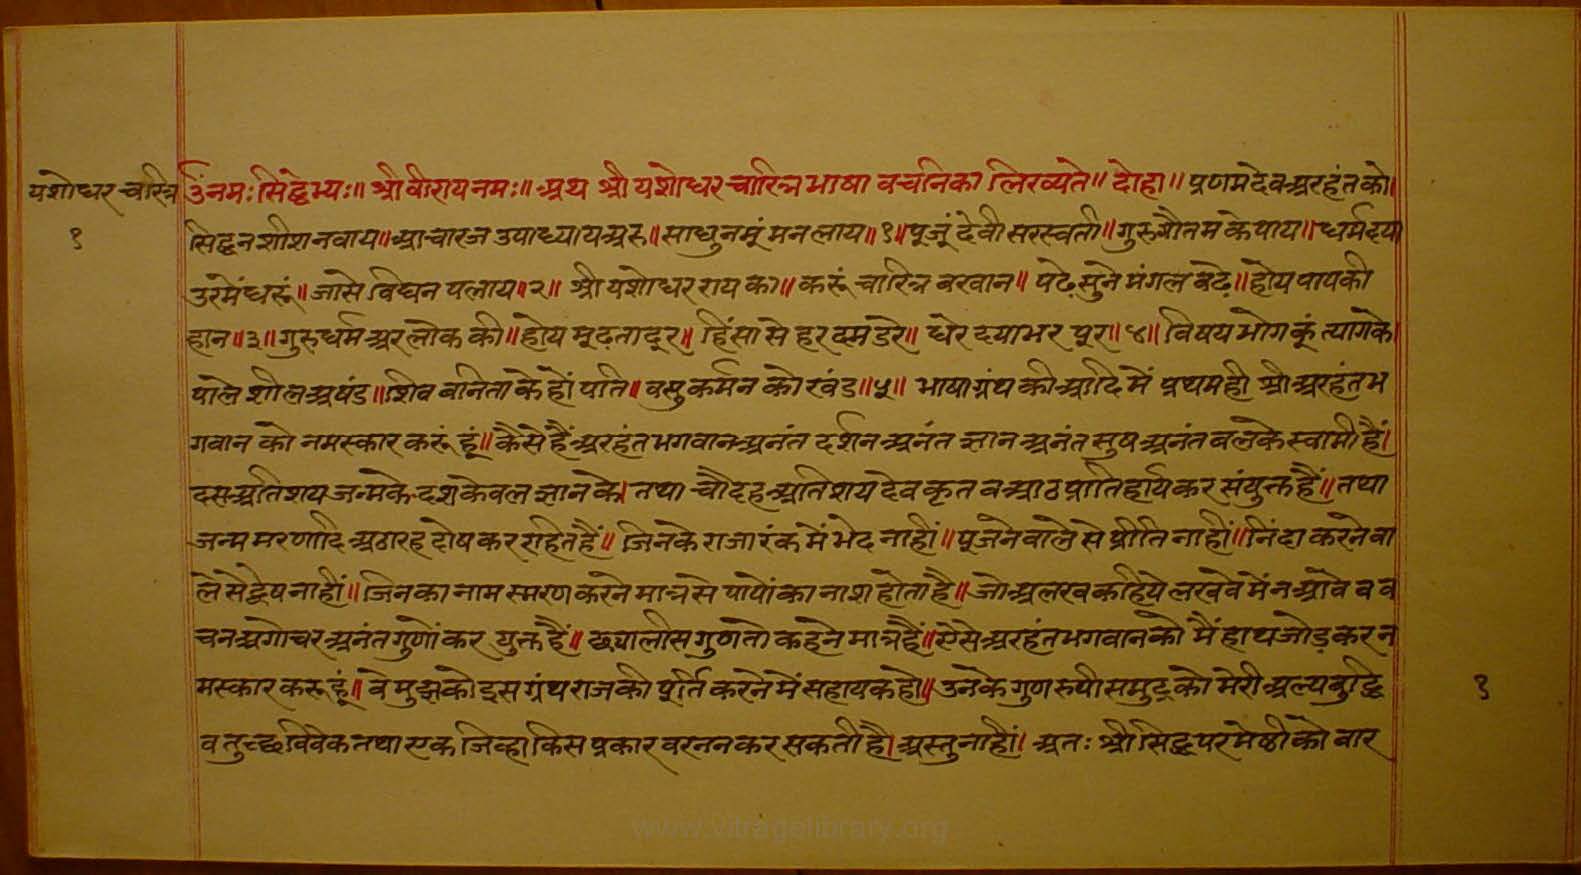 यशोधर चरित्र
१
उंनमः सिद्धेभ्यः॥ श्री वीराय नमः॥ अथ श्री यशोधर चारित्र भाषा वचनिका लिख्यते॥ दोहा॥ प्रणम देव अरहंत को।
सिद्धन शीश नवाय॥ आचारज उपाध्याय अरु॥ साधु नमूं मन लाय॥१॥ पूजूं देवी सरस्वती॥ गुरु गौतम के पाय॥ धर्म दया
उरमें धरूं॥ जासे विघन पलाय॥२॥ श्री यशोधर राय का॥ करूं चारित्र बखान॥ पढे़ सुने मंगल बढे़॥ होय पापकी
हान॥३॥ गुरु धर्म अर लोक की॥ होय मूढता दूर॥ हिंसा से हर दम डरे॥ धेर दया भर पूर॥४॥ विषय भोग कूं त्यागके।
पाले शील अषंड॥ शिव बनिता के हों पति। वसु कर्मन को खंड॥५॥ भाषा ग्रंथ की आदि में प्रथम ही श्री अरहंत भ
गवान को नमस्कार करूं हूं॥ कैसे हैं अरहंत भगवान अनंत दर्शन अनंत ज्ञान अनंत सुष अनंत बल के स्वामी हैं।
दस अतिशय जन्म के दश केवल ज्ञान के। तथा चौदह अतिशय देव कृत व आठ प्रातिहार्य कर संयुक्त हैं॥ तथा
जन्म मरणादि अठारह दोष कर रहित हैं॥ जिनके राजा रंक में भेद नाहीं॥ पूजने वाले से प्रीति नाहीं॥ निंदा करने वा
ले से द्वेष नाहीं॥ जिन का नाम स्मरण करने मात्र से पापों का नाश होता है॥ जो अलख कहिये लखवे में न आवे व व
चन अगोचर अनंत गुणों कर युक्त हैं॥ छ्यालीस गुण तो कहने मात्र हैं॥ ऐसे अरहंत भगवान को मैं हाथ जोड़ कर न
मस्कार करू हूं॥ वे मुझको इस ग्रंथ राज की पूर्ति करने में सहायक हो॥ उनके गुण रुपी समुद्र को मेरी अल्प बुद्धि
व तुच्छ विवेक तथा एक जिव्हा किस प्रकार वरनन कर सकती है। अस्तु नाहीं। अतः श्री सिद्ध परमेष्ठी को बार
१
www.vitragelibrary.org